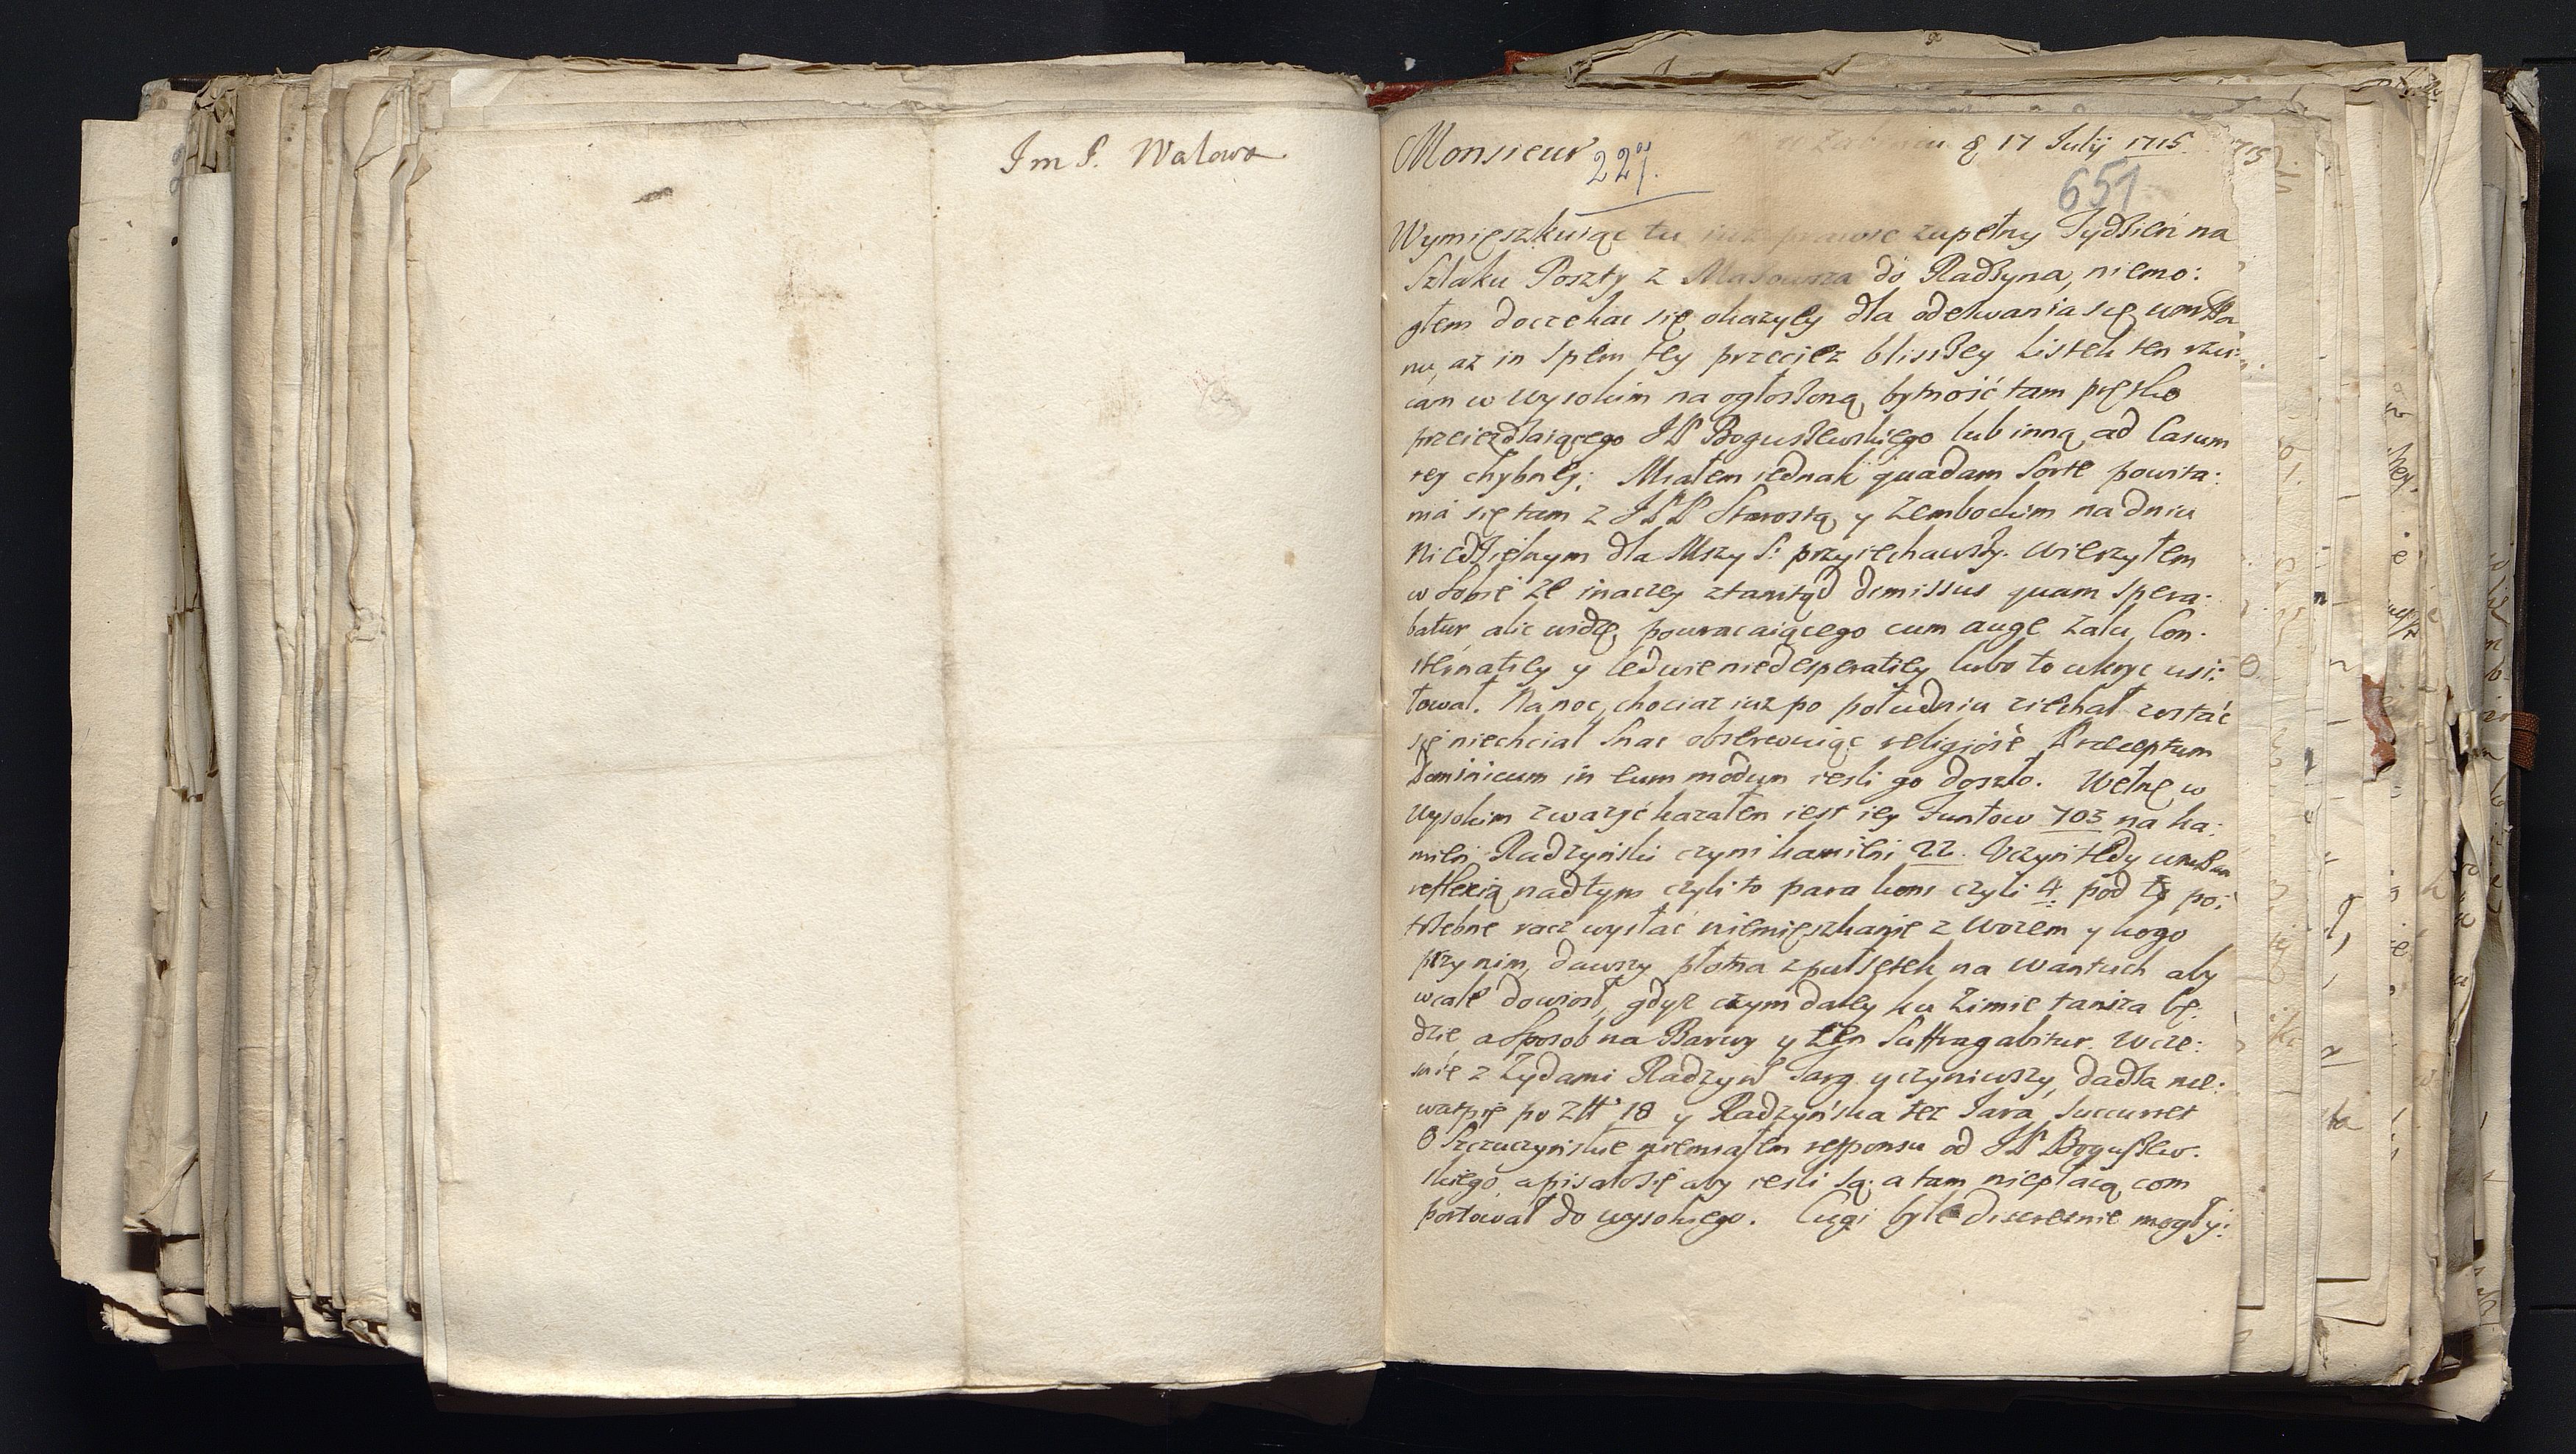 Im P. Walowa
Monsieur 227. d 17 Julij 1715.
651
Wymięszkuiąc tu iuz prawie zupełny Tydzień na
Szlaku Poszty z Mazowsza do Radzyna, niemo:
głem doczekac się okazyey dla odezwania się
nu, az in spem tey przeciez blisszey Listek ten rzu:
cam w Wysokim na ogłoszoną bytność tam prętko
przeiezdzaiącego JP Boguszewskiego lub inną ad Casum
tey chybney; Miałem iednak quadam sorte powita:
nia się tam z JPP Starostą y Zembockim na dniu
Niedzielnym dla Mszy S: przyiechawszy. Wierzyłem
w sobie ze inaczey ztamtąd dimissus quam spera:
batur, alic widzę powracaiącego cum auge zalu, Con:
sternatiey y ledwie niedesperatiey lubo to ukryc usi:
łował. Na noc, chociaz iuz po południu ziechał zostać
się niechciał snac obserwuiąc religiosè Præceptum
Dominicum in eum modum iesli go doszło. Wełnę w
Wysokim zwazyć kazałem iest iey Funtow 703 na ka:
mień Radzyński czyni kamieni 22. Uczyń tedy
reflexią nad tym czyli to para koni czyli 4. pod tę po:
trzebne racz wysłac niemięszkanie z Wozem y kogo
przy nim, dawszy płotna zpułsetek na Wantuch aby
wcale dowiosł, gdyz czym daley ku Zimie tansza bę:
dzie, a Sposob na Barwy y ten Suffragabitur. Wcze:
snie z Zydami Radzyń targ uczyniwszy, dadzą nie:
wątpię po Złł 18 y Radzyńska tez Jara, succurret
O Szczuczyńskie niemiałem responsu od JP Boguszew:
skiego, a pisałosię aby iesli są a tam niepłacą com
portował do Wysokiego. Cugi byle discretnie mogły: